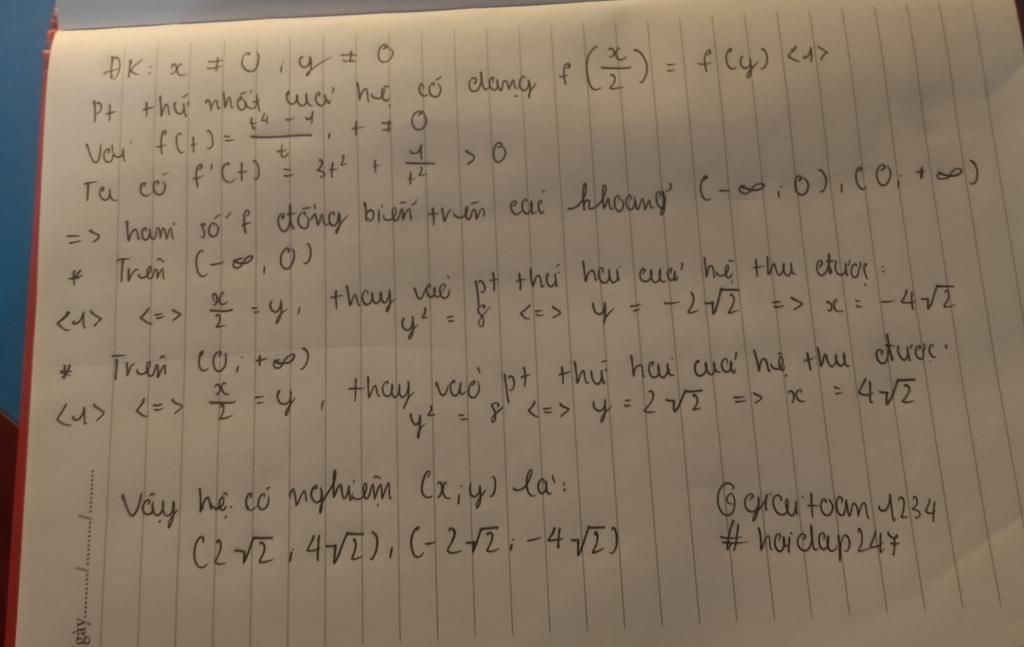 ĐK: x ≠ 0, y ≠ 0
Pt thứ nhất của hệ có dạng f(x/2) = f(y) <1>
Với f(t) = (t⁴ - 1)/t, t ≠ 0
Ta có f'(t) = 3t² + 1/t² > 0
=> hàm số f đồng biến trên các khoảng (-∞; 0), (0; +∞)
* Trên (-∞; 0)
<1> <=> x/2 = y, thay vào pt thứ hai của hệ thu được:
y² = 8 <=> y = -2√2 => x = -4√2
* Trên (0; +∞)
<1> <=> x/2 = y, thay vào pt thứ hai của hệ thu được.
y² = 8 <=> y = 2√2 => x = 4√2
Vậy hệ có nghiệm (x; y) là:
(2√2; 4√2), (-2√2; -4√2)
@giaitoam1234
#hoidap247
gày....../....../......